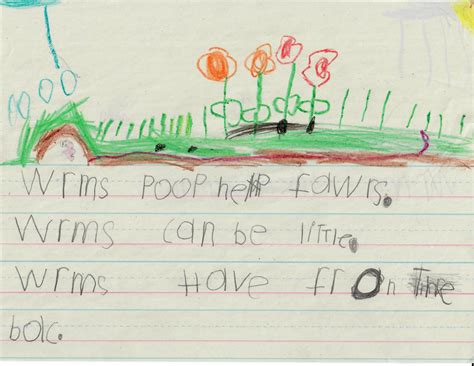 Wrms POOP help fawrs.
Wrms can be little.
Wrms Have frOn The
bolc.